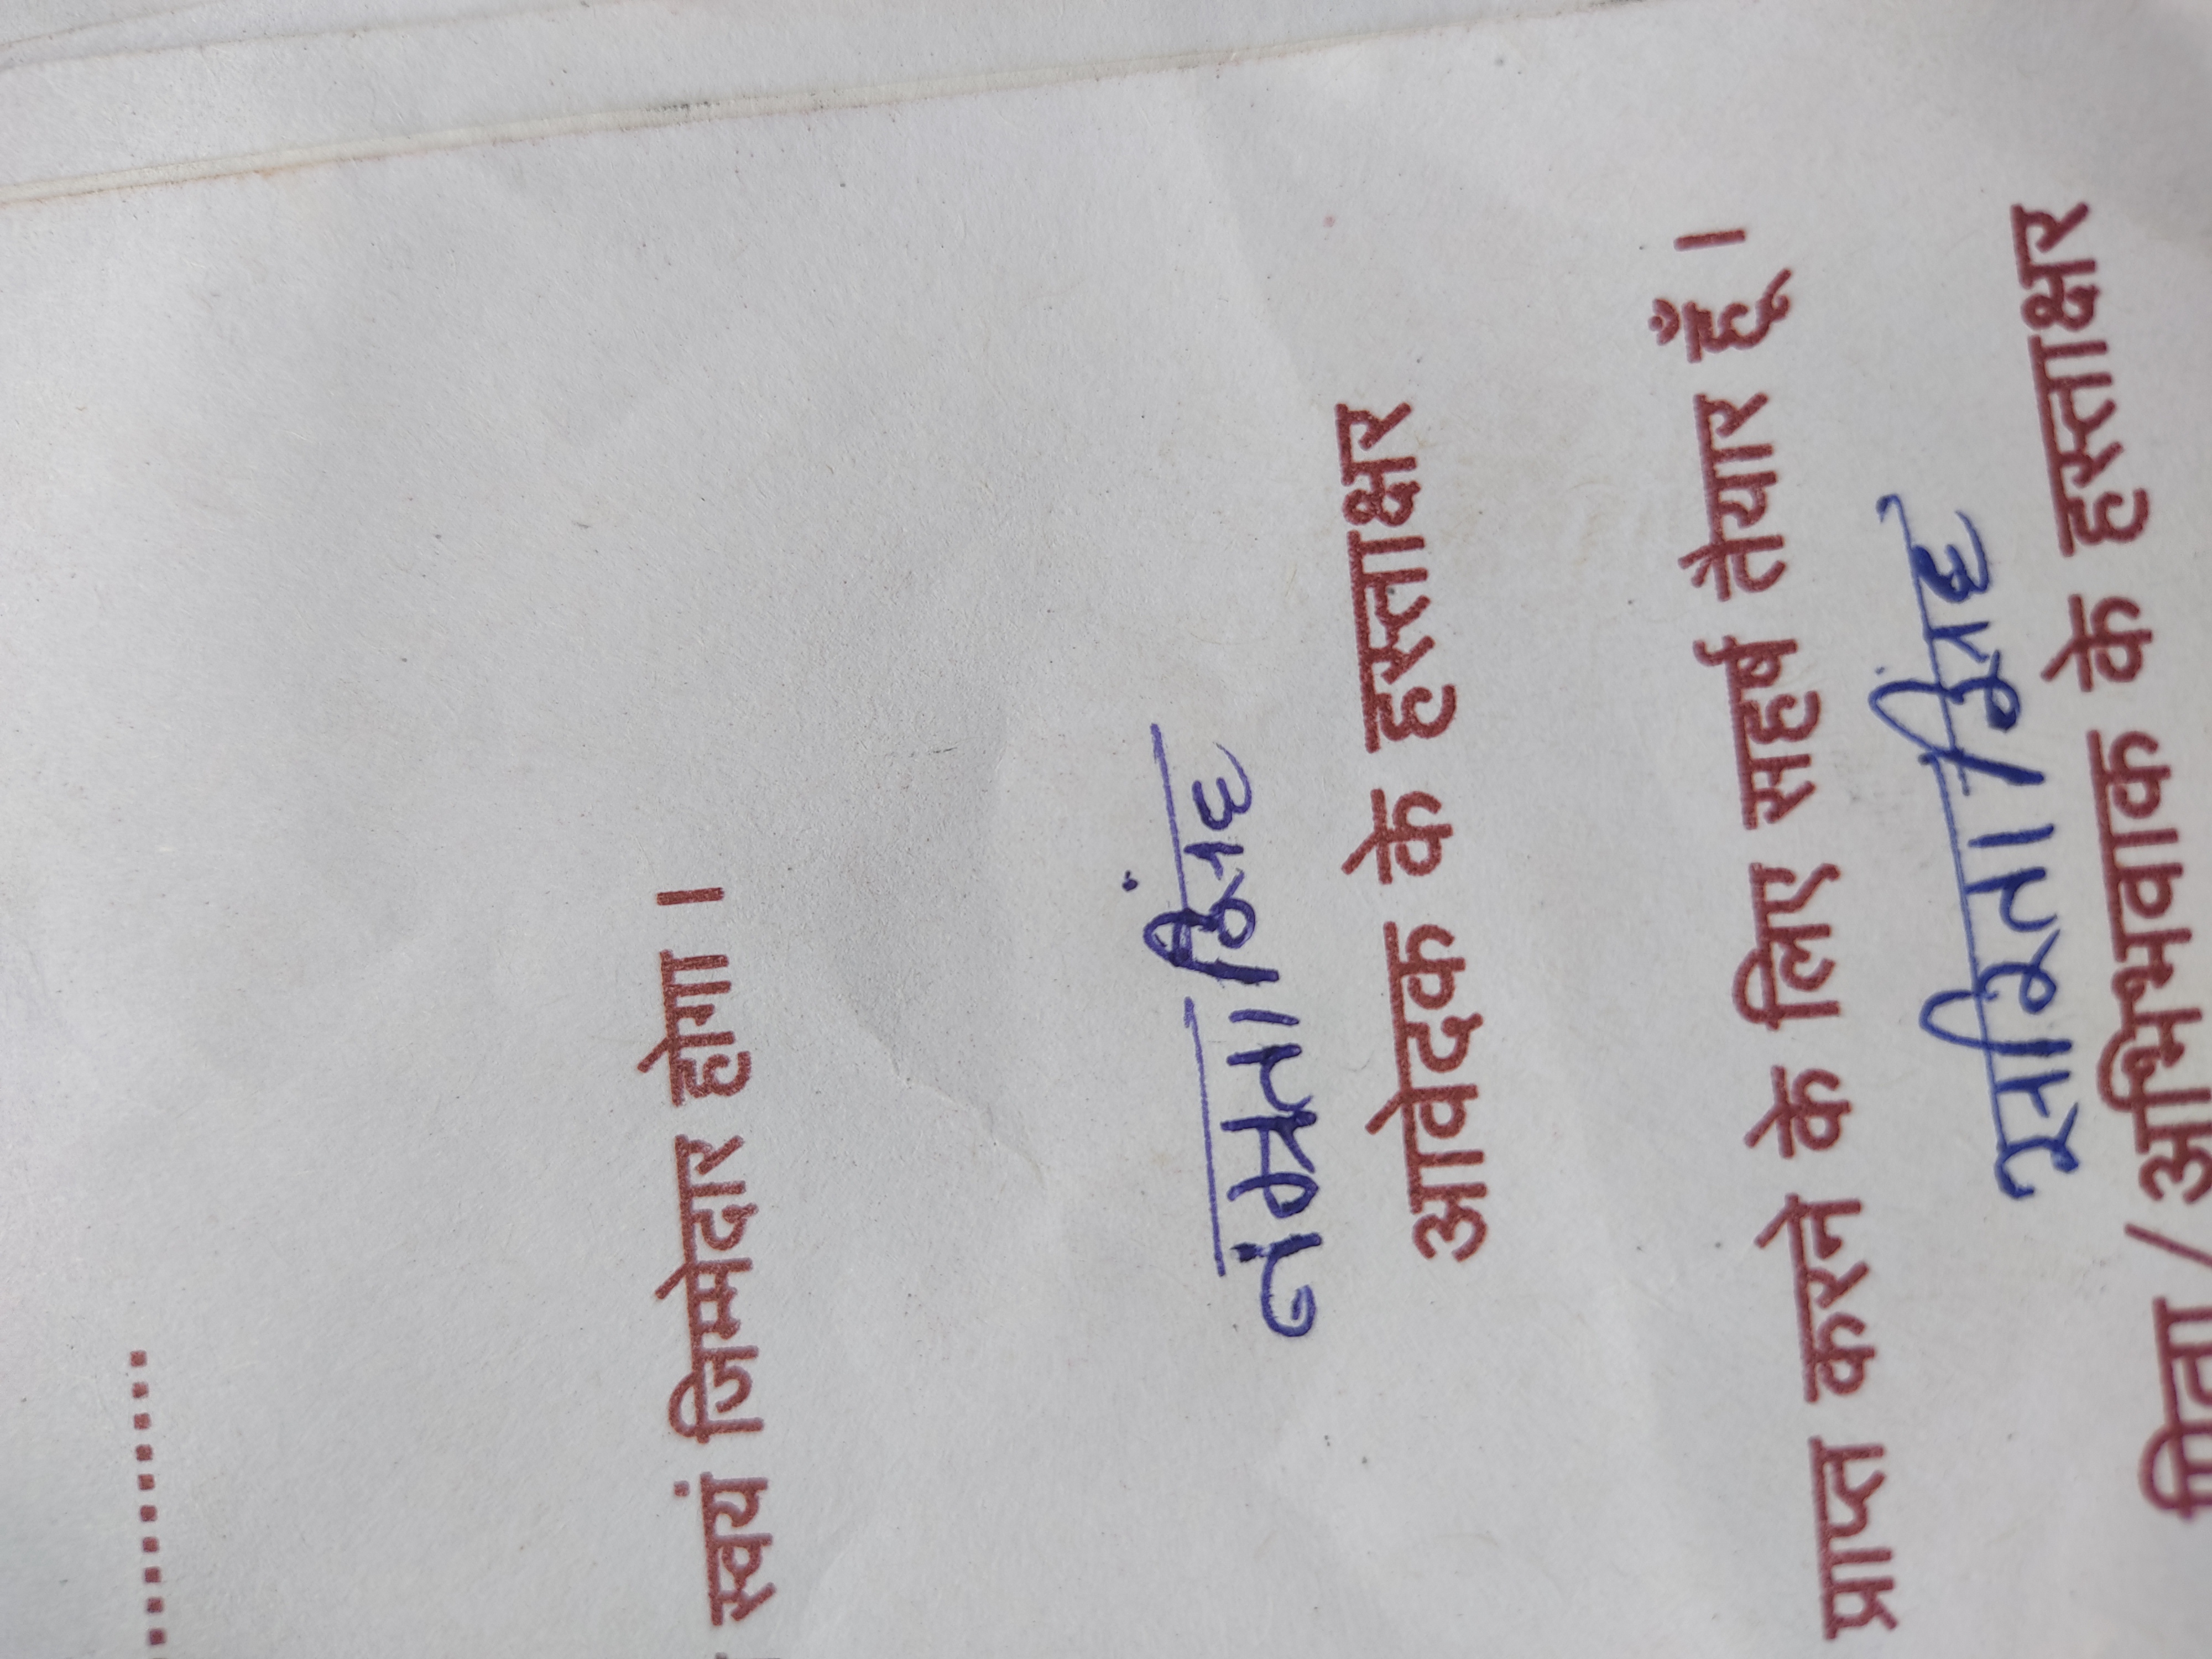 स्वयं जिम्मेदार होगा ।
आवेदक के हस्ताक्षर
प्राप्त करने के लिए सहर्ष तैयार हूँ ।
पिता / अभिभावक के हस्ताक्षर